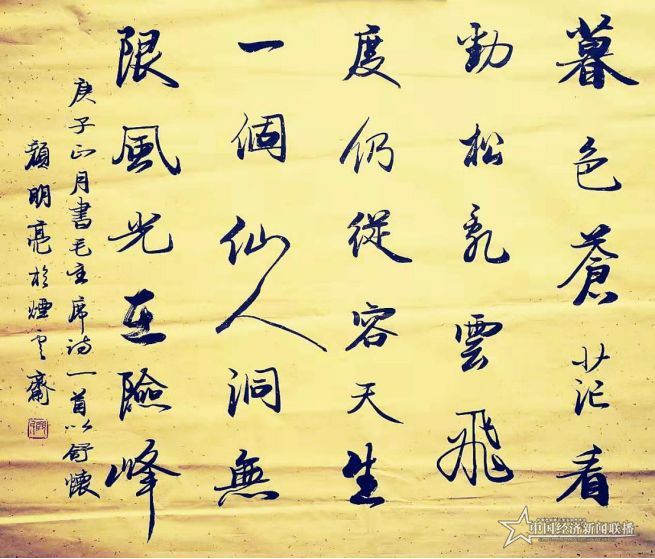 暮色蒼茫看
勁松亂雲飛
度仍從容天生
一個仙人洞無
限風光在險峰
庚子正月書毛主席诗一首以舒懷
顏明亮於煙雲齋
中国经济新闻联播